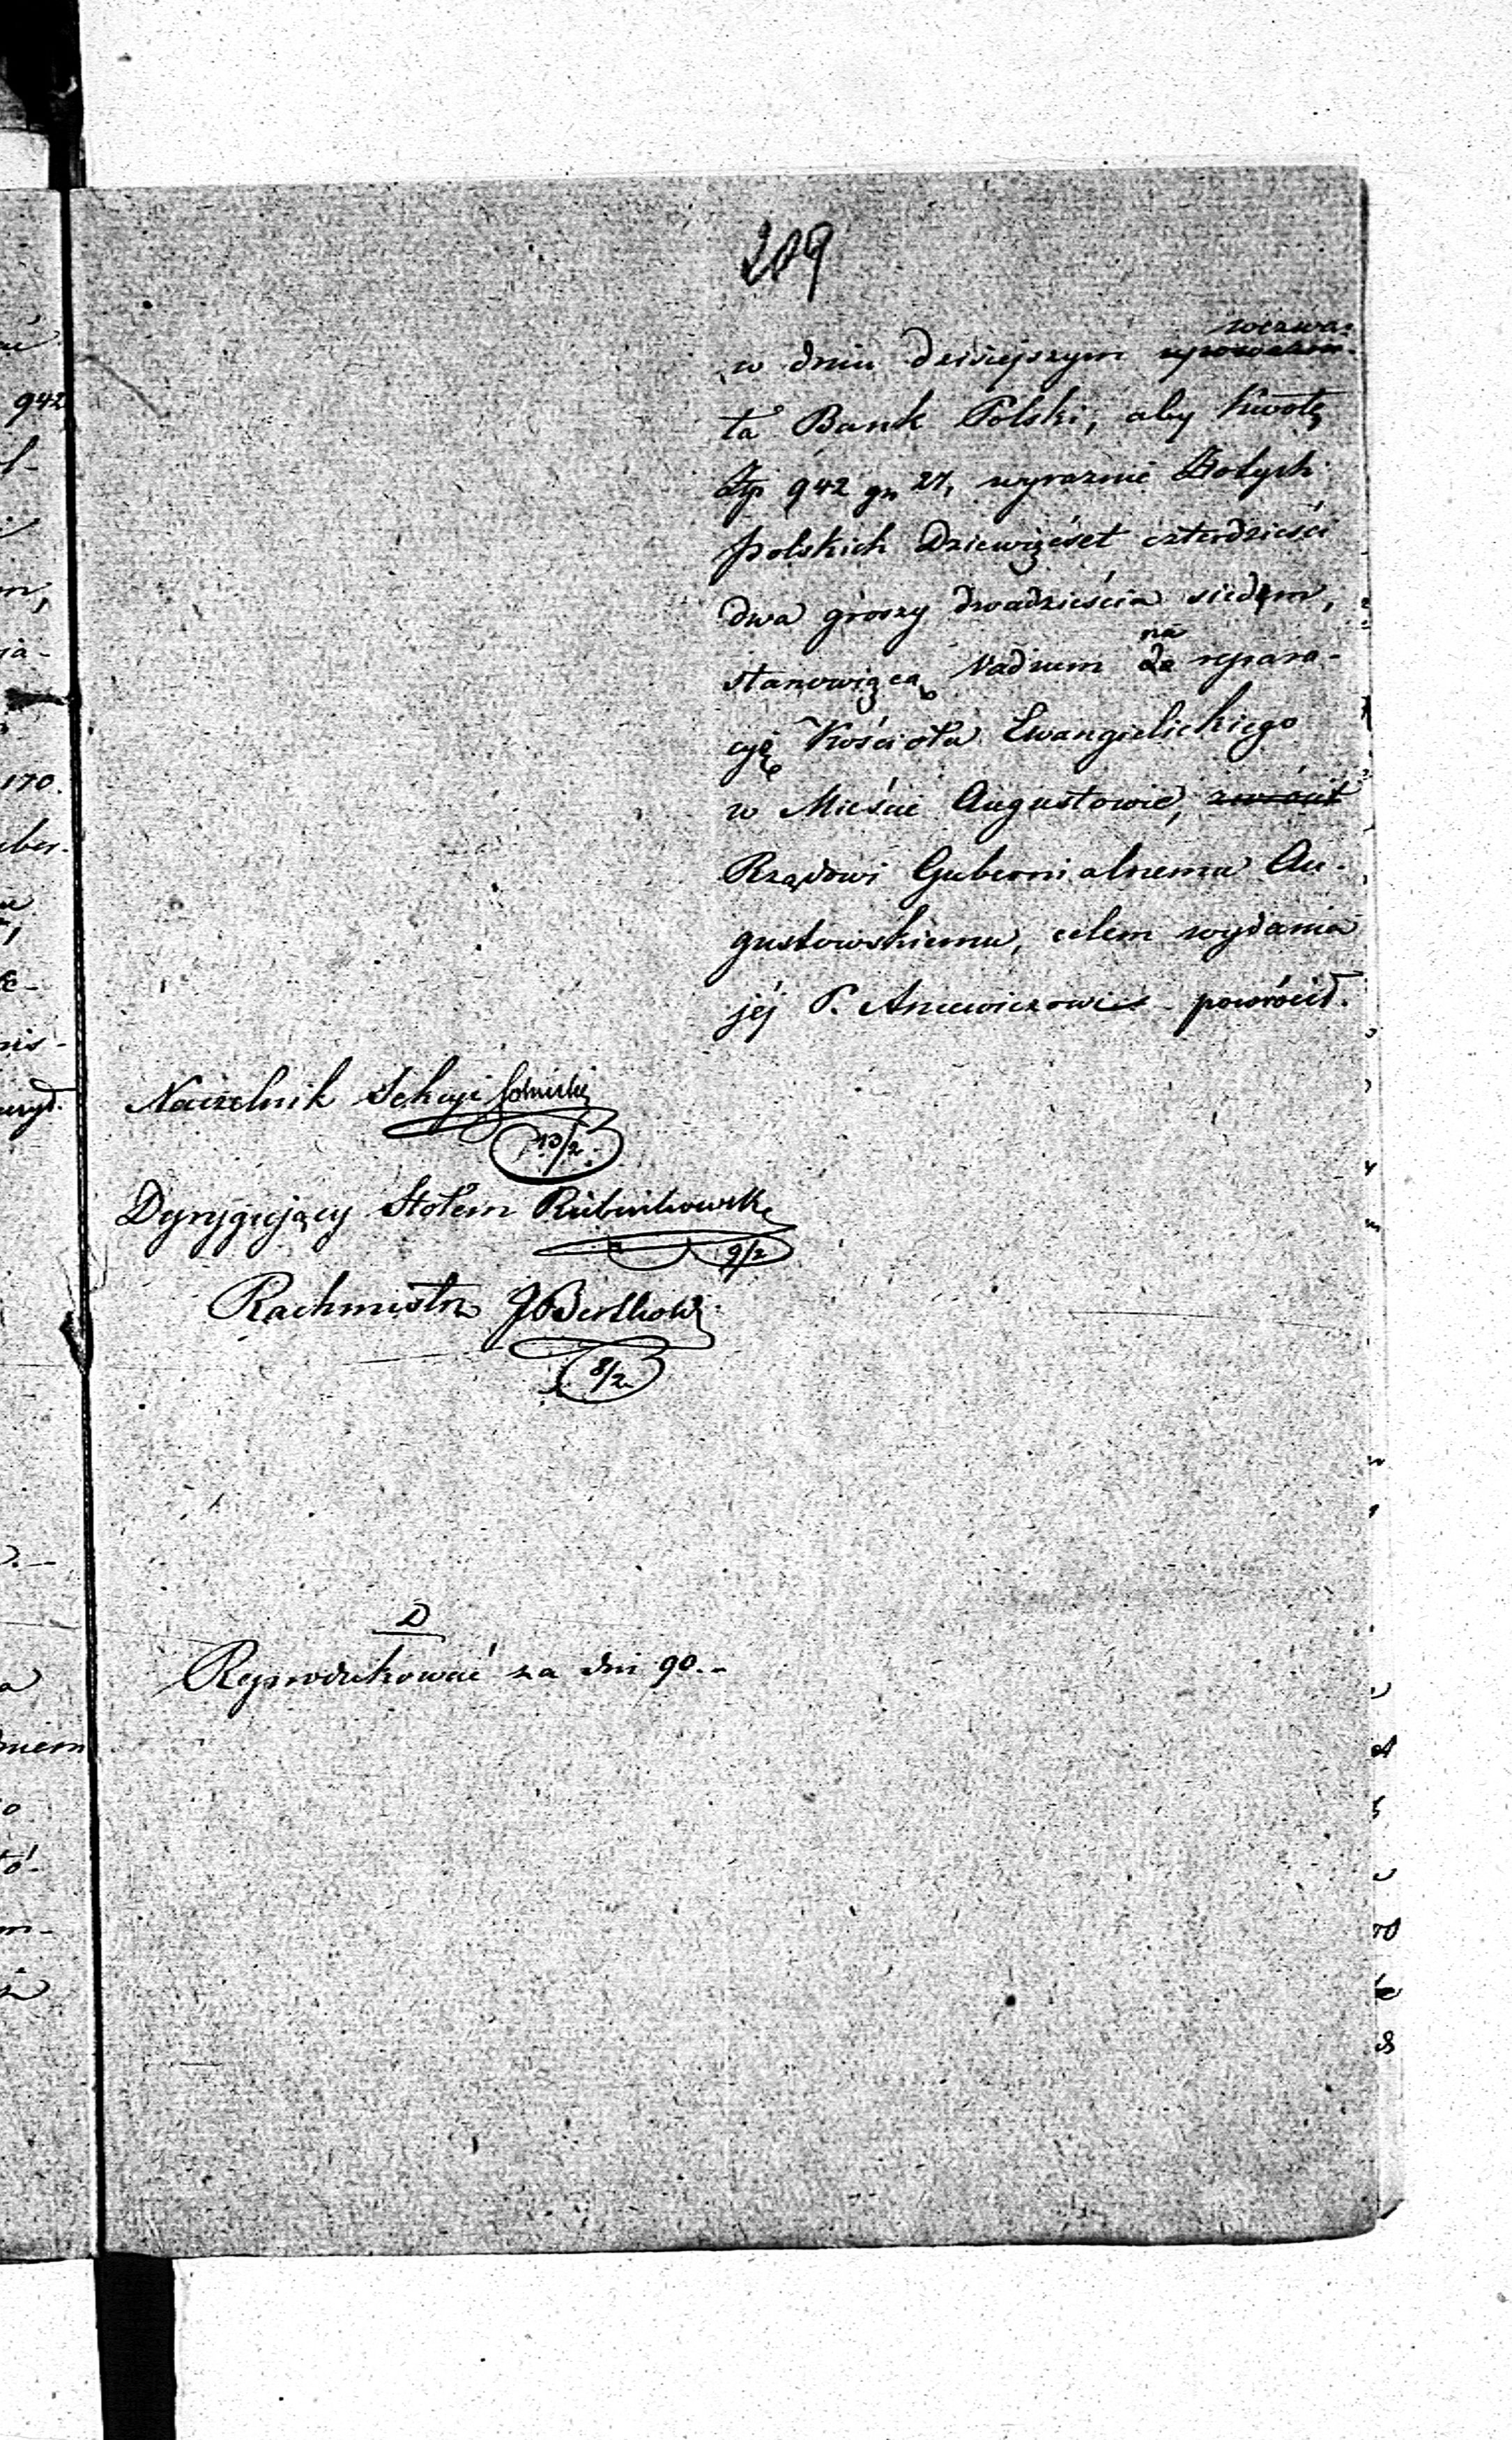 209
wezwa-
w dniu dzisiejszym upoważni-
ła Bank Polski, aby kwotę
Złp 942 gr 27, wyraźnie Złotych
polskich Dziewięćset czterdzieści
dwa groszy dwadzieścia siedem,
stanowiącą Vadium na repara-
cyę Kościoła Ewangielickiego
w Mieście Augustowie, zwrócił
Rządowi Gubernialnemu Au-
gustowskiemu, celem wydania
jéj P. Ancewiczowi powrócił.
Naczelnik Sekcyi
13/2
Dyrygujący Stołem
9/2
Rachmistrz
8/2
D
Reprodukować za dni 90.-